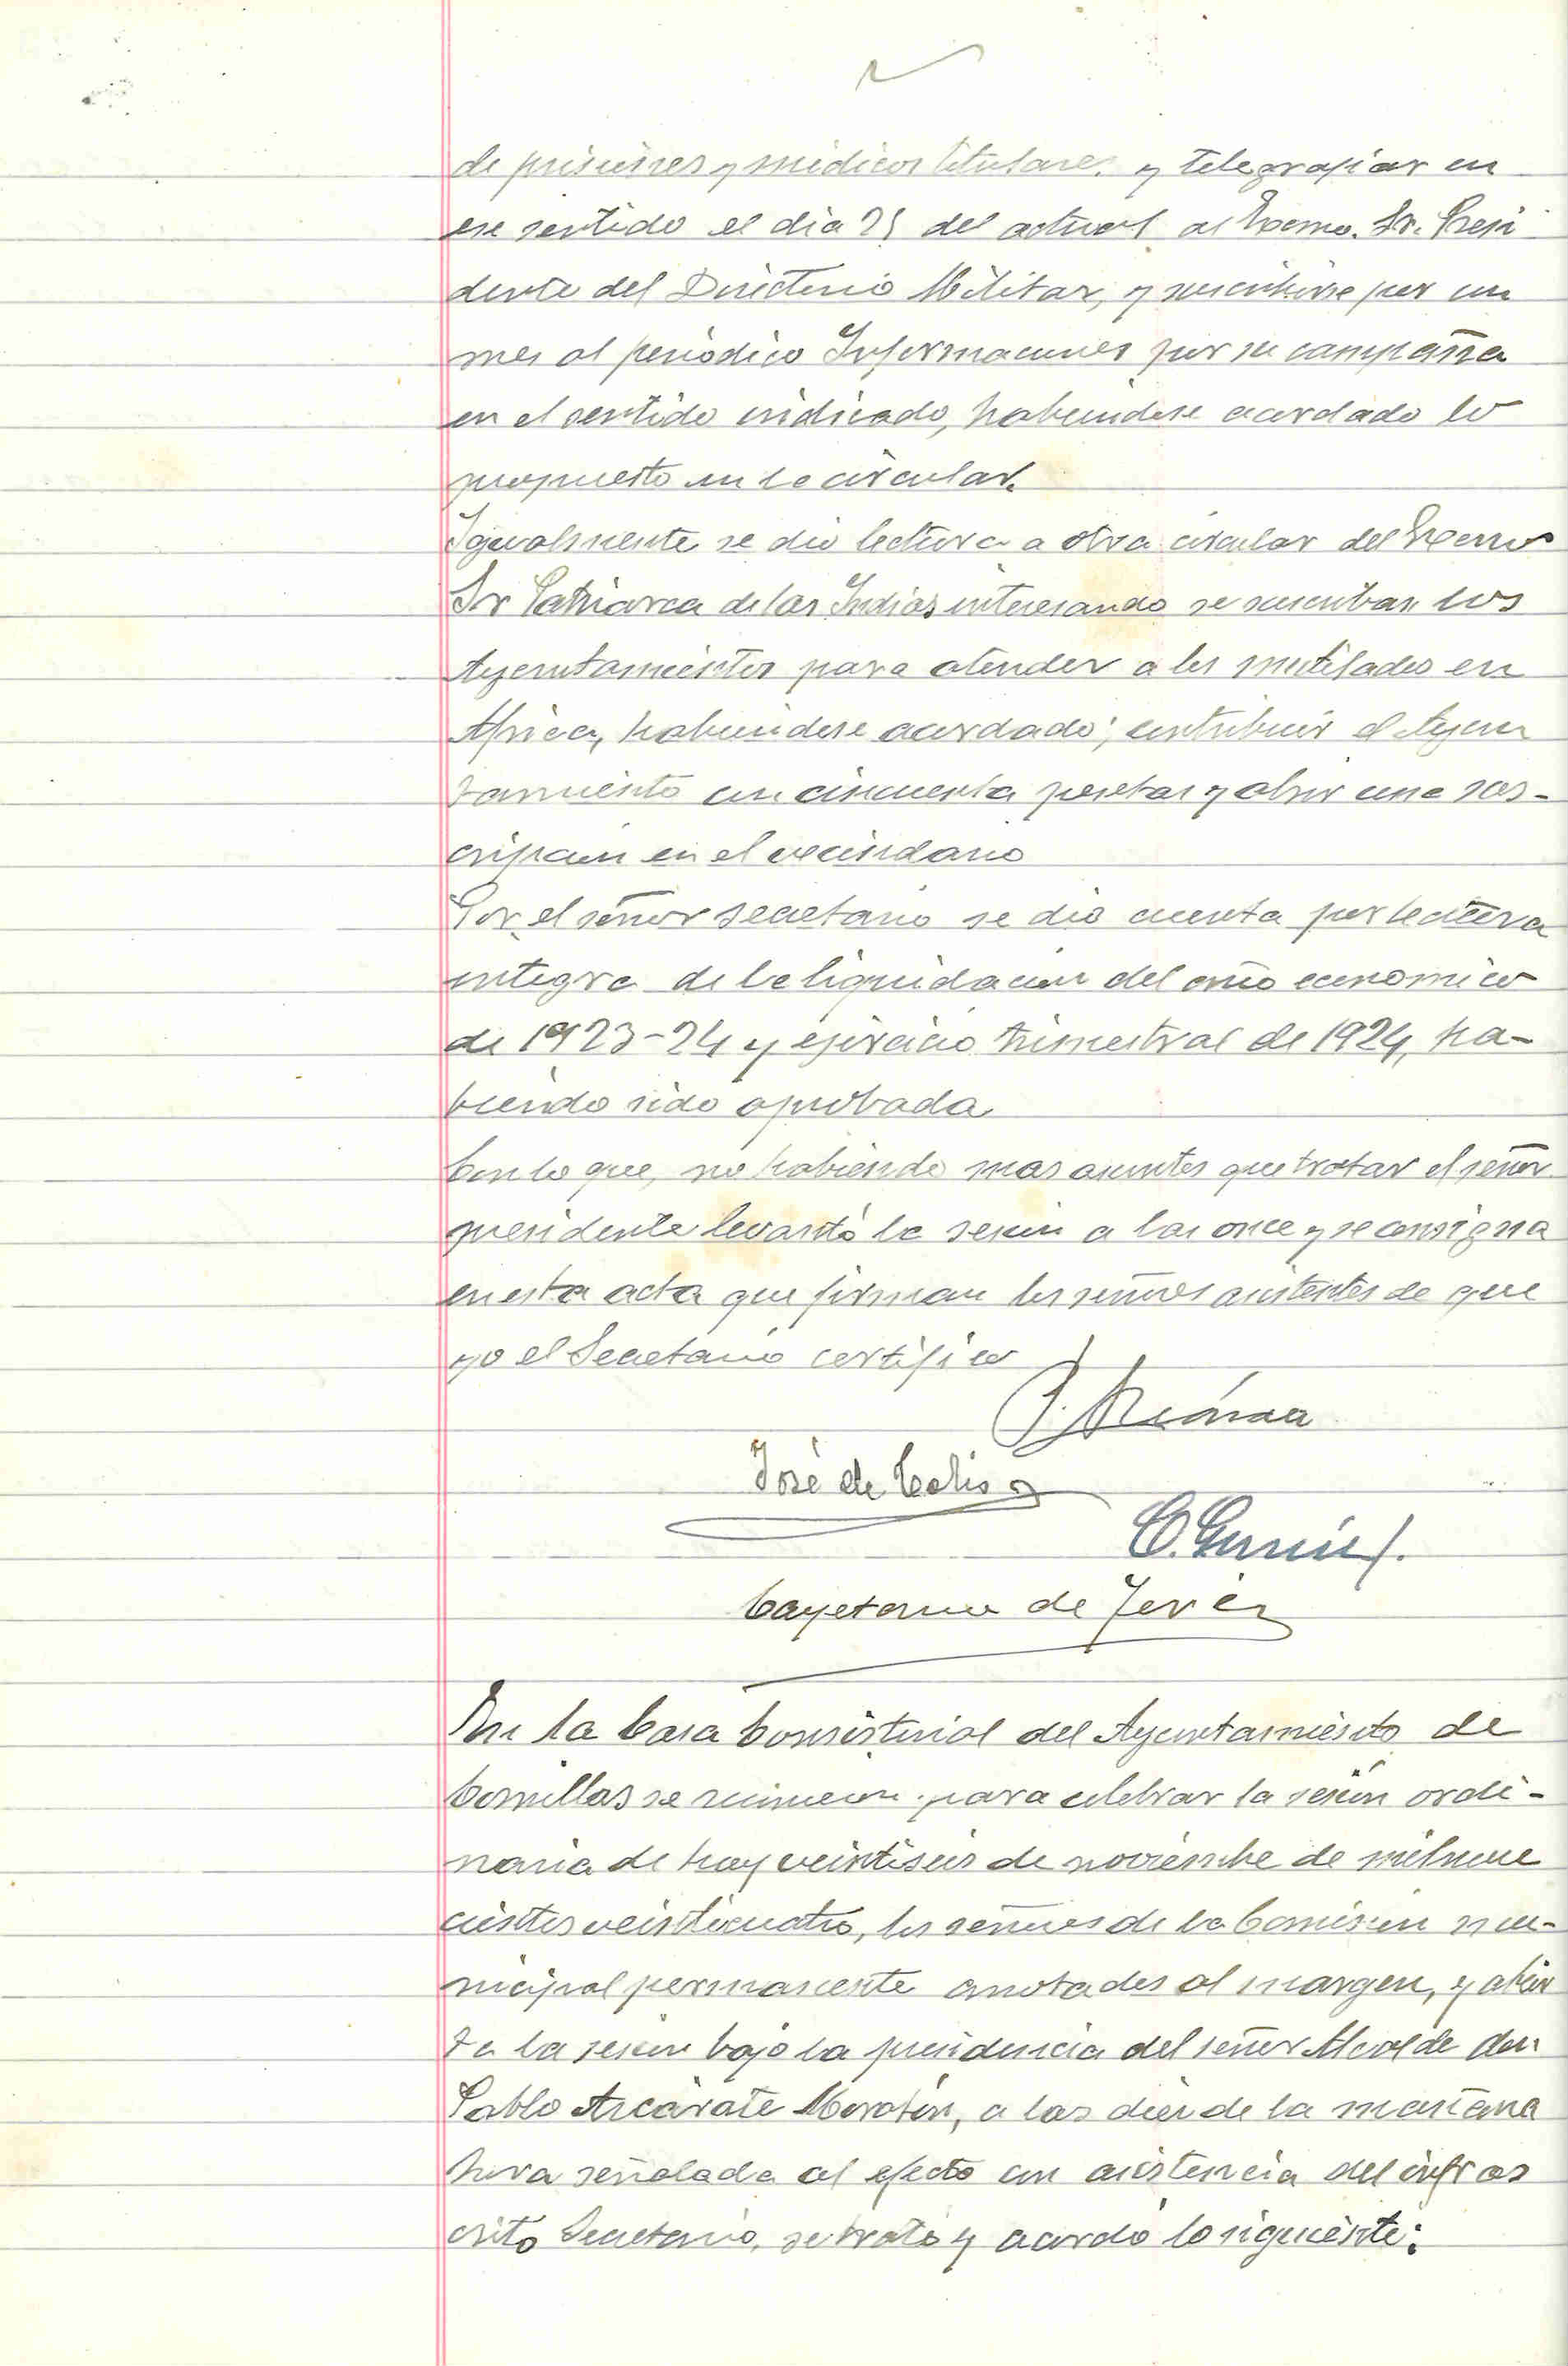 de prisiones y médicos titulares. y telegrafiar en
ese sentido el dia 25 del actual al Excmo. Sr. Presi
dente del Directorio Militar, y suscribirse por un
mes al periódico Informaciones por su campaña
en el sentido indicado, habiendose acordado lo
propuesto en la circular.
Igualmente se dió lectura a otra circular del Excmo
Sr Patriarca de las Indias interesando se suscriban los
Ayuntamientos para atender a los mutilados en
Africa, habiendose acordado; contribuir el Ayun
tamiento con cincuenta pesetas y abrir una sus-
cripcion en el vecindario
Por el señor secretario se dió cuenta por lectura
integra de la liquidacion del año economico
de 1923-24 y ejercicio trimestral de 1924, ha-
biendo sido aprobada
Con lo que, no habiendo mas asuntos que tratar el señor
presidente levantó la sesion a las once y se consigna
en esta acta que firman los señores asistentes de que
yo el Secretario certifico
José de Celis
Cayetano de
En la Casa Consistorial del Ayuntamiento de
Comillas se reunieron para celebrar la sesión ordi-
naria de hoy veintiseis de noviembre de mil nove
cientos veinticuatro, los señores de la Comision mu-
nicipal permanente anotados al margen, y abier
ta la sesion bajo la presidencia del señor Alcalde don
Pablo Azcárate Moratin, a las diez de la mañana
hora señalada al efecto con asistencia del infras
crito Secretario, se trató y acordó lo siguiente: